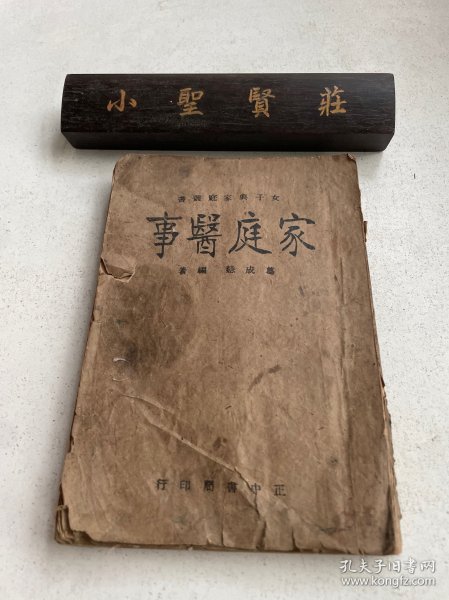 小聖賢莊
女子與家庭叢書
家庭醫事
葛成慧 編著
正中書局印行
孔夫子旧书网
www.kongfz.com